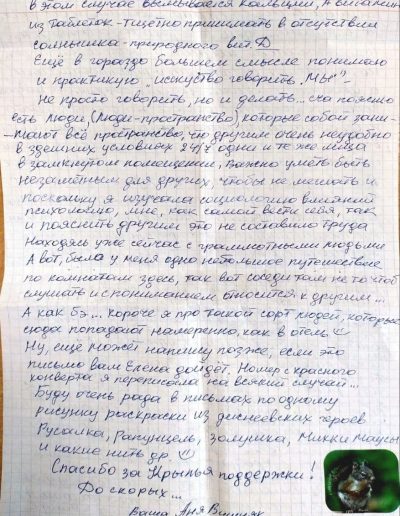 в этом случае вымывается кальций, А витамин
из таблеток - тщетно принимать в отсутствии
солнышка - природного вит. Д
Ещё в гораздо большем смысле понимаю
и практикую "искусство говорить "МЫ"" -
Не просто говорить, но и делать... ща поясню
есть люди, (люди-пространство), которые собой зани-
-мают всё пространство, что другим очень неудобно
в здешних условиях 24/7 одни и те же лица
в замкнутом помещении, Важно уметь быть
незаметным для других, чтобы не мешать и
поскольку я изучала социологию влияний
психологию, мне, как самой вести себя, так
и пояснить другим это не составило труда
Находясь уже сейчас с грамотными людьми
А вот, была у меня одно небольшое путешествие
по комнатам здесь, так вот соседи там не то чтоб
слушать и с пониманием относится к другим...
А как бэ... короче я про такой сорт людей, которые
сюда попадают намеренно, как в отель
Ну, еще может напишу позже, если это
письмо вам Елена дойдёт. Номер с красного
конверта я переписала на всякий случай...
Буду очень рада в письмах по одному
рисунку раскраски из диснеевских героев
Русалка, Рапунцель, золушка, Микки Маусы
и какие нить др.
Спасибо за Крылья поддержки!
До скорых...
Ваша Аня